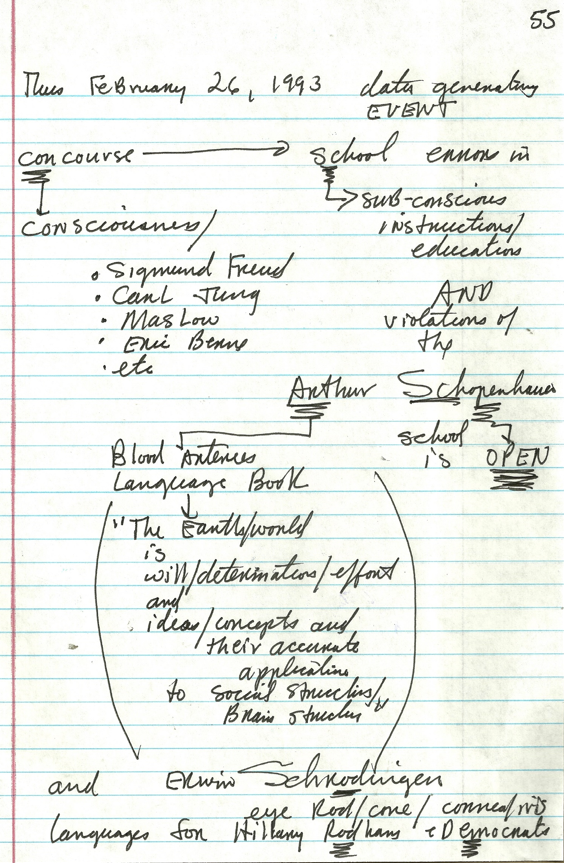 55
Thus February 26, 1993 data generating
EVENT
concourse → school errors in
sub-conscious
instructions/
education
consciousness/
• Sigmund Freud
• Carl Jung
• Maslow
• Eric Berne
• etc
AND
violations of
the
Arthur Schopenhauer
school
is OPEN
Blood Arteries
Language Book
"The Earth/world
is
will/determination/effort
and
ideas/concepts and
their accurate
application
to social structures/
Brain structures"
and Erwin Schrodinger
eye Rod/cone/cornea/iris
languages for Hillary Rodhams eDemocrats